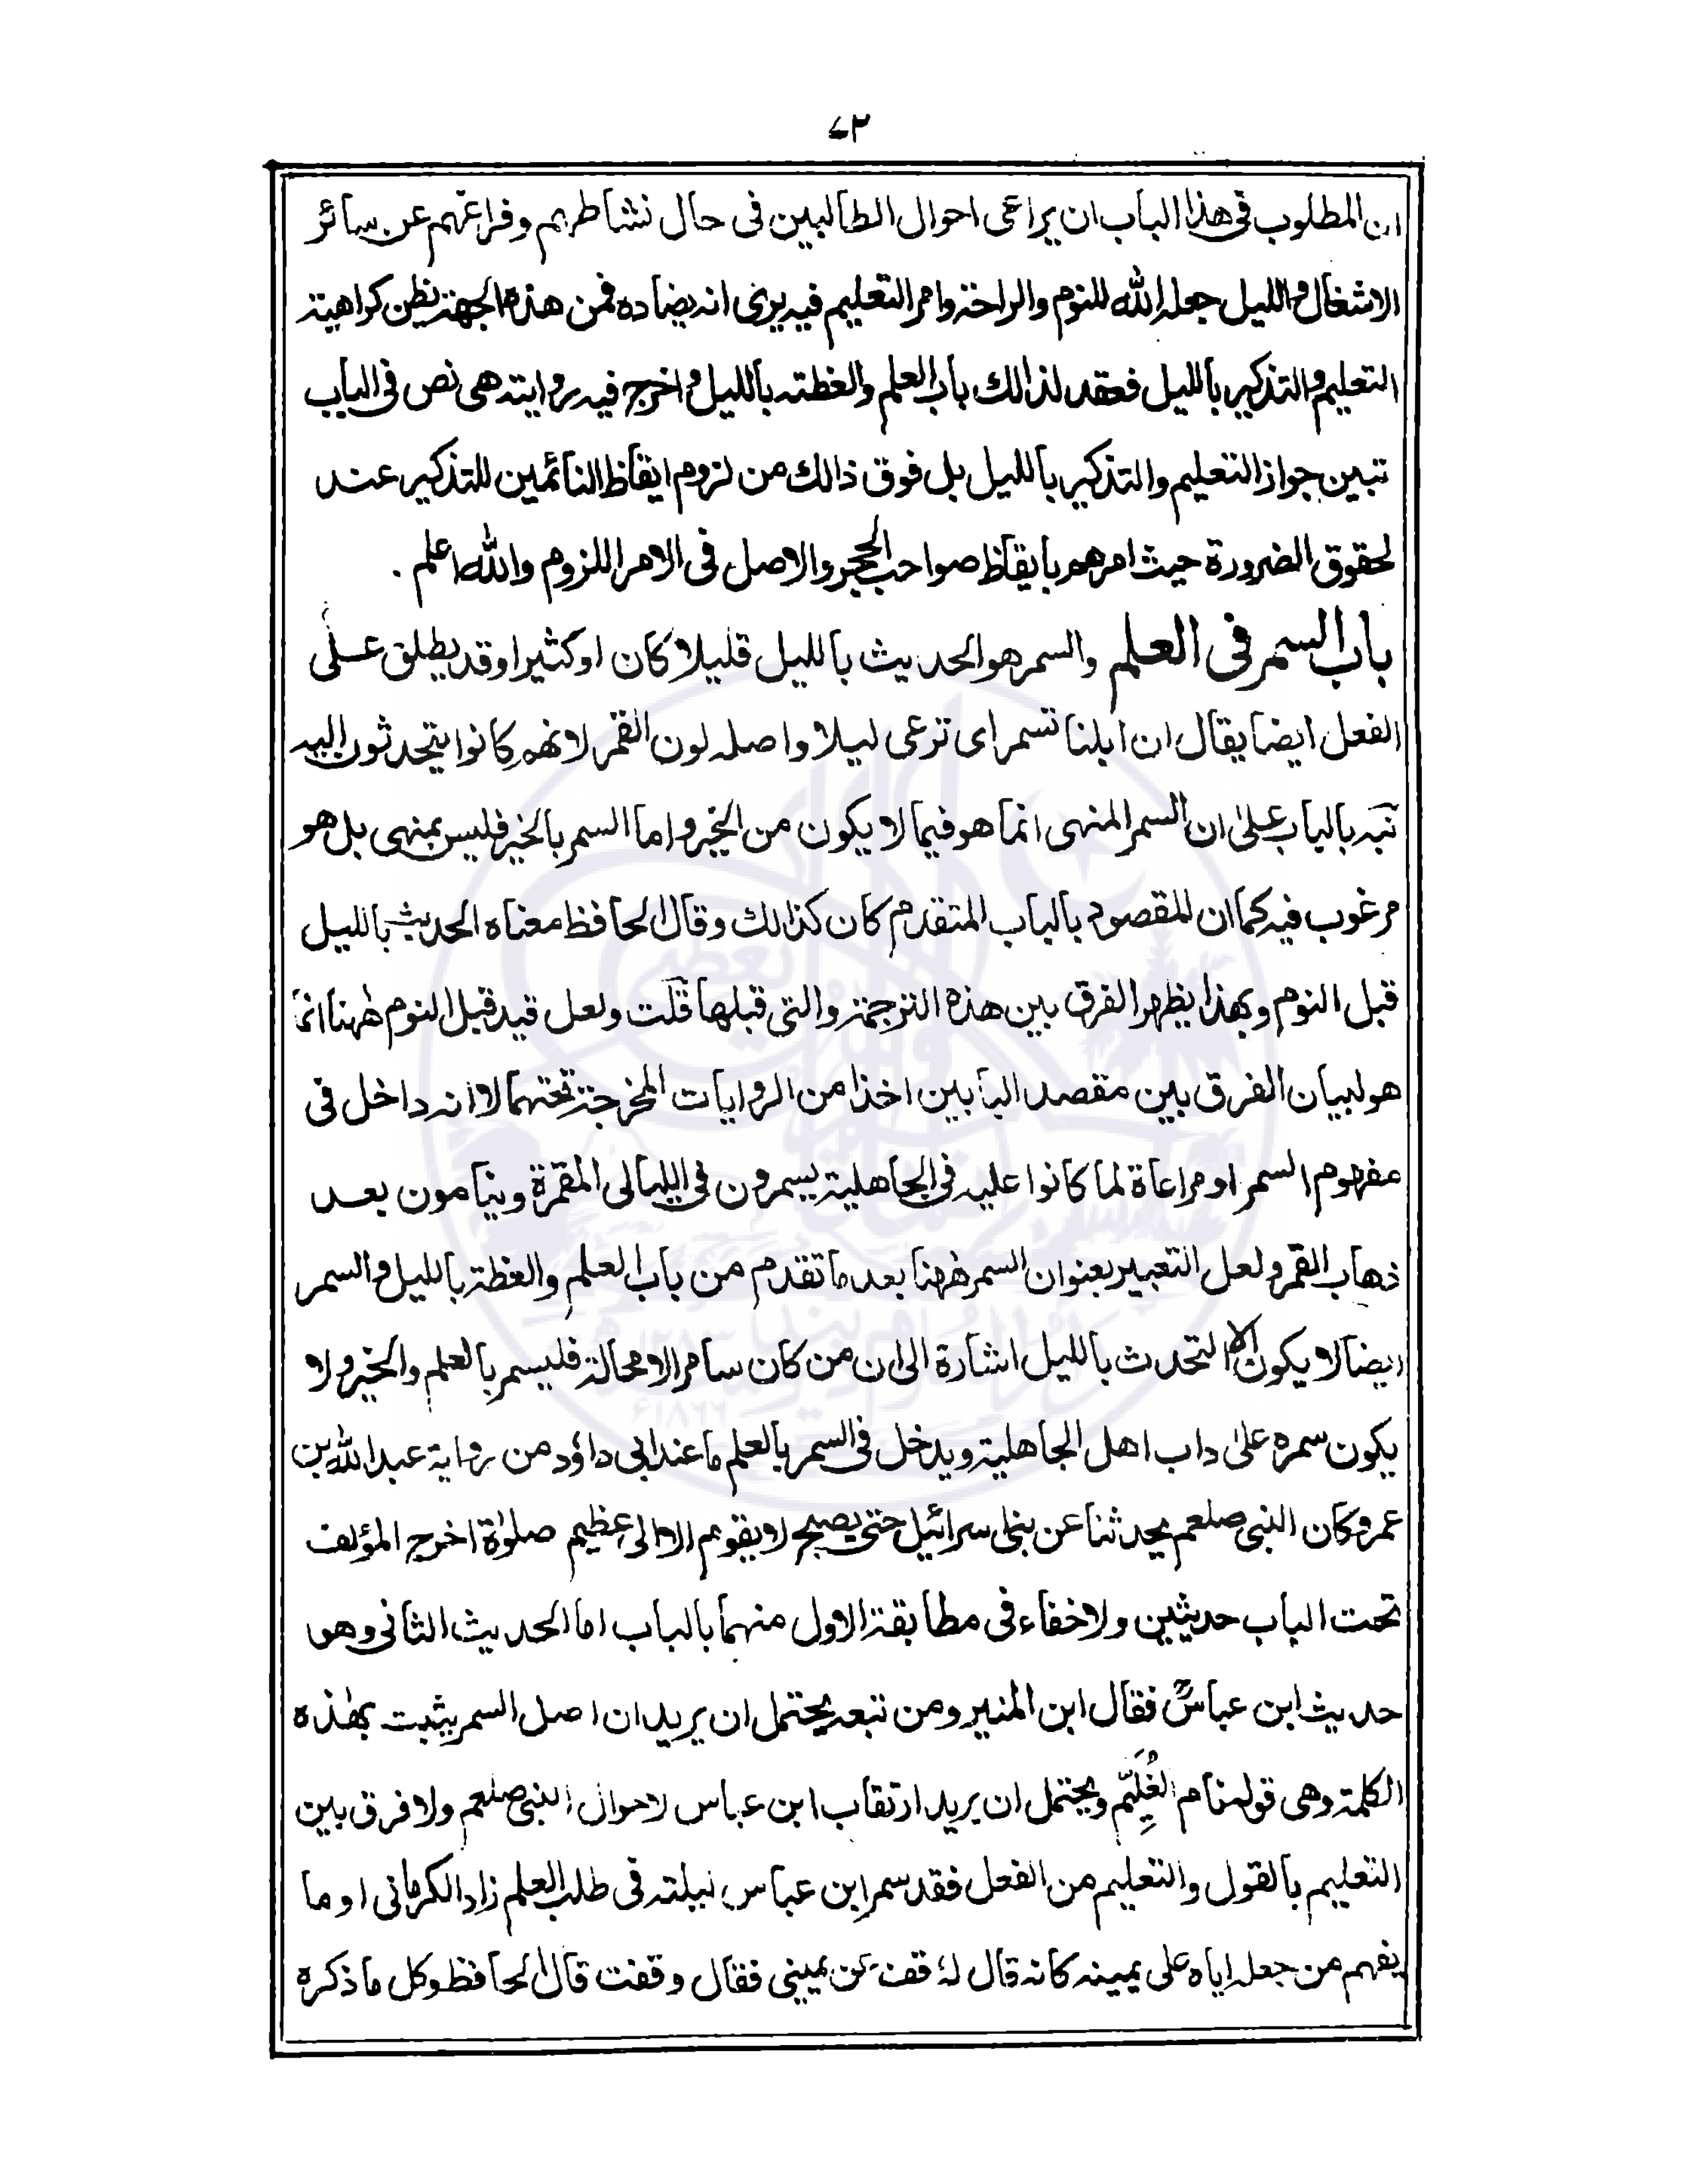 ٧٣
ان المطلوب فى هذا الباب ان يراعى احوال الطالبين فى حال نشاطهم وفراغهم عن سائر
الاشغال والليل جعله الله للنوم والراحة وامر التعليم فيه يرى انه يضاده فمن هذه الجهة يظن كراهية
التعليم والتذكير بالليل فعقد لذالك باب العلم والعظته بالليل واخرج فيه روايته هى نص فى الباب
تبين جواز التعليم والتذكير بالليل بل فوق ذالك من لزوم ايقاظ النائمين للتذكير عند
لحقوق الضرورة حيث امرهم بايقاظ صواحب الحجر والاصل فى الامر اللزوم والله اعلم .
باب السمر فى العلم والسمر هو الحديث بالليل قليلا كان او كثيرا وقد يطلق على
الفعل ايضا يقال ان ابلنا تسمر اى ترعى ليلا واصله لون القمر لانهم كانوا يتحدثون اليه
نبّه بالباب على ان السمر المنهى انما هو فيما لا يكون من الخير واما السمر بالخير فليس بمنهى بل هو
مرغوب فيه كما ان المقصود بالباب المتقدم كان كذالك وقال الحافظ معناه الحديث بالليل
قبل النوم وبهذا يظهر الفرق بين هذه الترجمة والتى قبلها قلت ولعل قيد قبل النوم ههنا انما
هو لبيان الفرق بين مقصد البابين اخذا من الروايات المخرجة تحتهما لا انه داخل فى
مفهوم السمر او مراعاة لما كانوا عليه فى الجاهلية يسمرون فى الليالى المقمرة وينامون بعد
ذهاب القمر ولعل التعبير بعنوان السمر ههنا بعد ما تقدم من باب العلم والعظة بالليل والسمر
ايضا لا يكون الا التحدث بالليل اشارة الى ان من كان سامرا لا محالة فليسمر بالعلم والخير ولا
يكون سمره على داب اهل الجاهلية ويدخل فى السمر بالعلم ما عند ابى داؤد من رواية عبد الله بن
عمرو كان النبى صلعم يحدثنا عن بنى اسرائيل حتى يصبح لا يقوم الا الى عظيم صلوٰة اخرج المؤلف
تحت الباب حديثين ولا خفاء فى مطابقة الاول منهما بالباب اما الحديث الثانى وهو
حديث ابن عباسؓ فقال ابن المنير ومن تبعه يحتمل ان يريد ان اصل السمر يثبت بهٰذه
الكلمة وهى قوله نام الغُلَيِّم ويحتمل ان يريد ارتقاب ابن عباس لاحوال النبى صلعم ولا فرق بين
التعليم بالقول والتعليم من الفعل فقد سمر ابن عباس ليلته فى طلب العلم زاد الكرمانى او ما
يفهم من جعله اياه على يمينه كانه قال له قف عن يمينى فقال وقفت قال الحافظ وكل ما ذكره